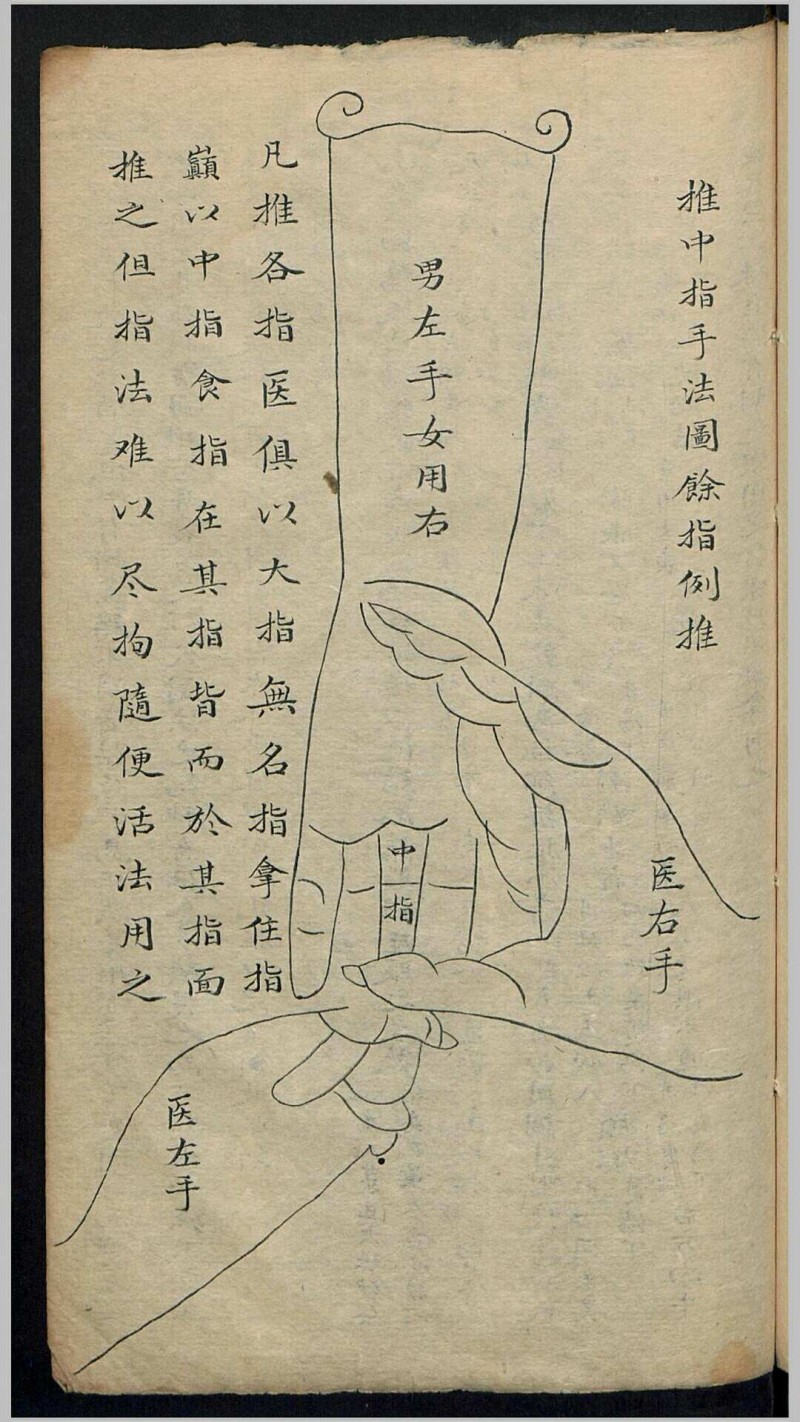 推中指手法圖餘指例推
男左手女用右
中指
医右手
凡推各指医俱以大指無名指拿住指
巔以中指食指在其指背而於其指面
推之但指法难以尽拘隨便活法用之
医左手